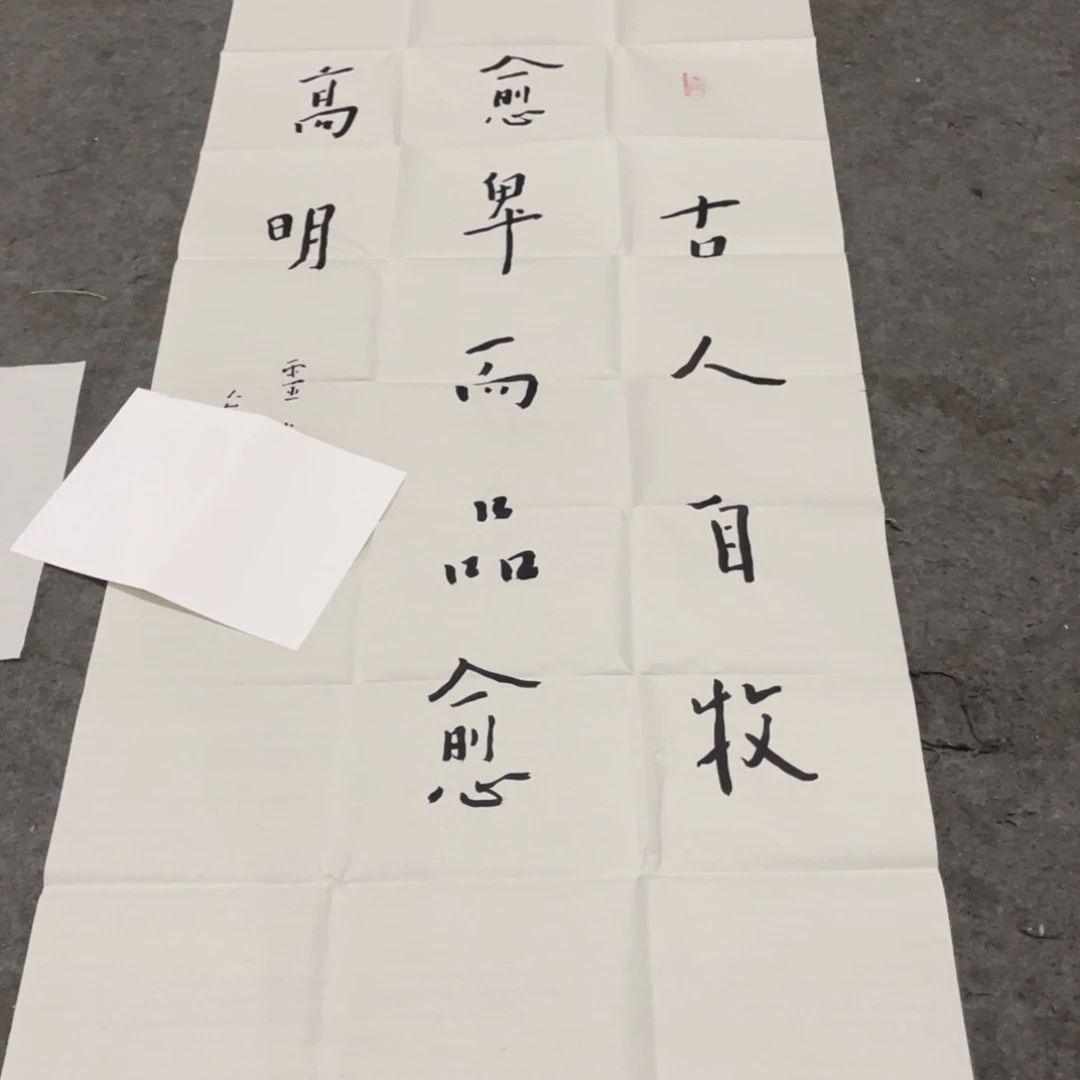 古人自牧
愈卑而品愈
高明